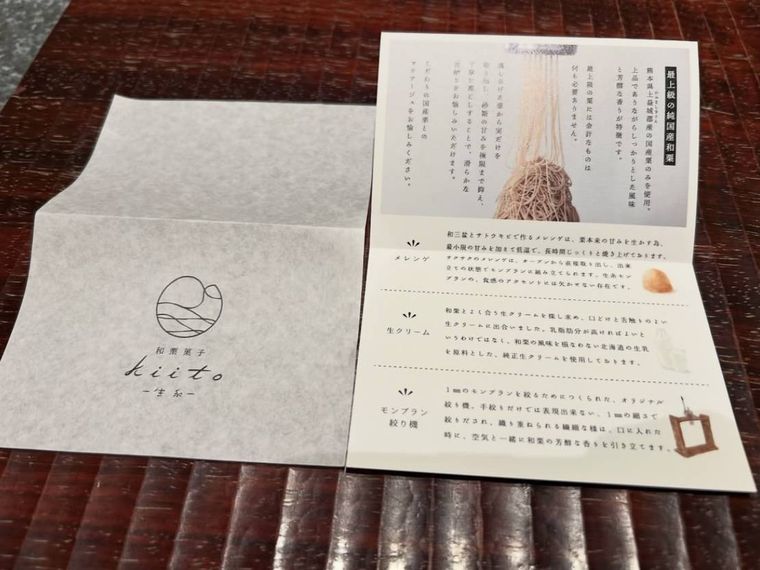 和栗菓子
kiito
ー生糸ー
最上級の純国産和栗
熊本県上益城郡産の国産栗のみを使用。
上品でありながらしっかりとした風味
と芳醇な香りが特徴です。
最上級の栗には余計なものは
何も必要ありません。
蒸しあげた栗から実だけを
取り出し、砂糖の甘みを極限まで抑え、
丁寧に裏ごしすることで、滑らかな
をお愉しみいただけます。
こだわりの国産栗との
マリアージュをお愉しみください。
メレンゲ
和三盆とサトウキビで作るメレンゲは、栗本来の甘みを生かす為、
最小限の甘みを加えて低温で、長時間じっくりと焼き上げております。
サクサクのメレンゲは、オーブンから直接取り出し、出来
立ての状態でモンブランに組み立てられます。生糸モン
ブランの、食感のアクセントには欠かせない存在です。
生クリーム
和栗とよく合う生クリームを探し求め、口どけと舌触りのよい
生クリームに出会いました。乳脂肪分が高ければよいと
いうわけではなく、和栗の風味を損なわない北海道の生乳
を原料とした、純正生クリームを使用しております。
モンブラン
絞り機
1㎜のモンブランを絞るためにつくられた、オリジナル
絞り機。手絞りだけでは表現出来ない、1㎜の細さで
絞りだされ、織り重ねられる繊細な様は、口に入れた
時に、空気と一緒に和栗の芳醇な香りを引き立てます。